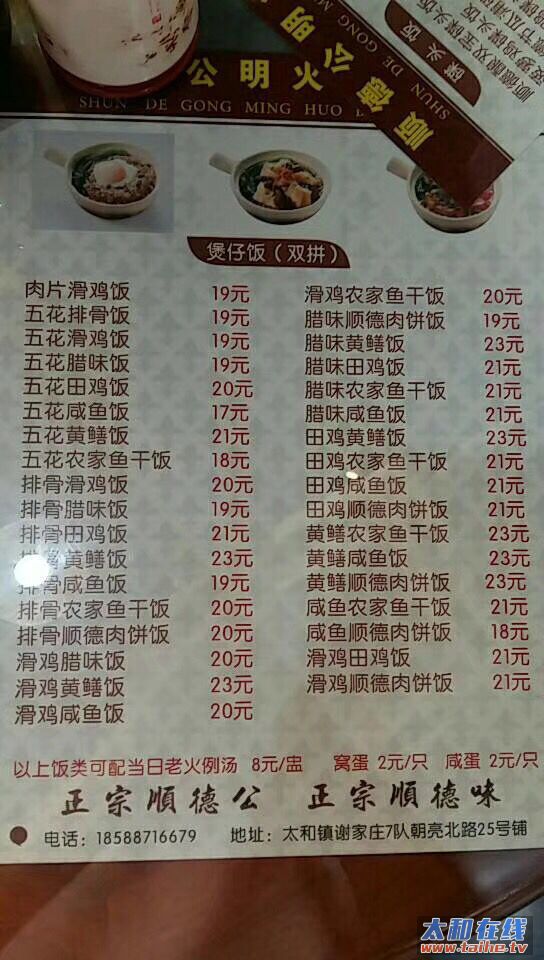 公明火
SHUN DE GONG MING HUO
顺德公明
SHUN DE GONG M
碟头饭
煲仔饭（双拼）
肉片滑鸡饭 19元
五花排骨饭 19元
五花滑鸡饭 19元
五花腊味饭 19元
五花田鸡饭 20元
五花咸鱼饭 17元
五花黄鳝饭 21元
五花农家鱼干饭 18元
排骨滑鸡饭 20元
排骨腊味饭 19元
排骨田鸡饭 21元
排骨黄鳝饭 23元
排骨咸鱼饭 19元
排骨农家鱼干饭 20元
排骨顺德肉饼饭 20元
滑鸡腊味饭 20元
滑鸡黄鳝饭 23元
滑鸡咸鱼饭 20元
滑鸡农家鱼干饭 20元
腊味顺德肉饼饭 19元
腊味黄鳝饭 23元
腊味田鸡饭 21元
腊味农家鱼干饭 21元
腊味咸鱼饭 21元
田鸡黄鳝饭 23元
田鸡农家鱼干饭 21元
田鸡咸鱼饭 21元
田鸡顺德肉饼饭 21元
黄鳝农家鱼干饭 23元
黄鳝咸鱼饭 23元
黄鳝顺德肉饼饭 23元
咸鱼农家鱼干饭 21元
咸鱼顺德肉饼饭 18元
滑鸡田鸡饭 21元
滑鸡顺德肉饼饭 21元
以上饭类可配当日老火例汤 8元/盅 窝蛋 2元/只 咸蛋 2元/只
正宗順德公 正宗順德味
电话：18588716679 地址：太和镇谢家庄7队朝亮北路25号铺
太和在线
www.taihe.tv